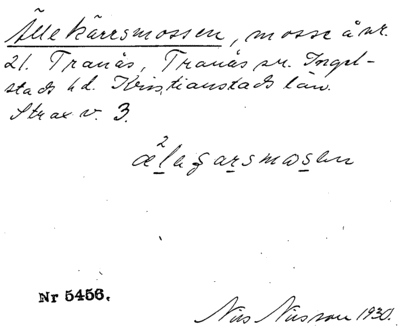 Ällekärrsmossen, mosse å nr.
21. Tranås, Tranås sn. Ingel-
stads hd. Kristianstads län.
Strax v. 3.
2
ælagarsmosen
Nr 5456.
Nils Nilsson 1930.